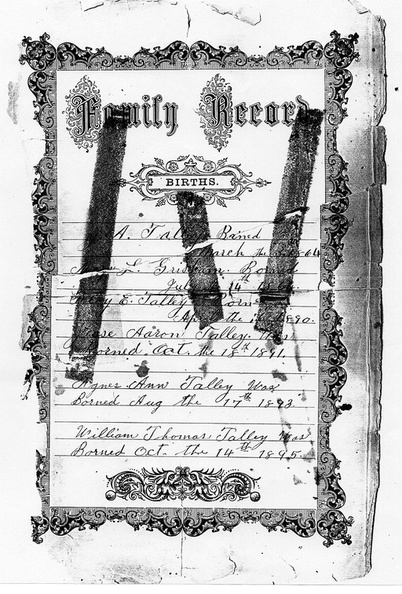 Family Record
BIRTHS.
A. Talley Borned
March the 1864
L. Borned
July 14th
E. Talley Borned
April the 1890.
Aaron Talley. Was
Borned. Oct. the 18th 1891.
Agnes Ann Talley Was
Borned Aug the 17th 1893
William Thomas Talley Was
Borned Oct. the 14th 1895